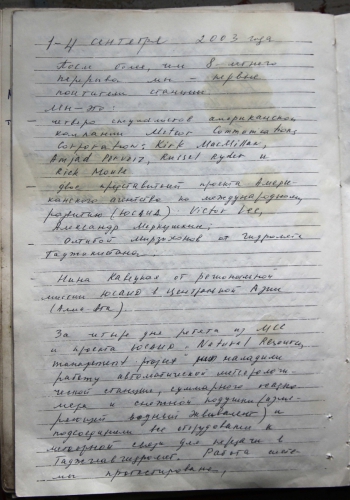 1-4 сентября 2003 года
После более, чем 8-летнего
перерыва мы - первые
посетители станции
Мы - это:
четверо специалистов американской
компании Meteor Communications
Corporation: Kirk MacMillan,
Amjad Pervaiz, Russel Ryder и
Rick Monte
двое представителей проекта Амери-
канского агентства по международному
развитию (ЮСАИД) Victor Lee,
Александр Меркушкин;
Олтибой Мирзохонов от гидромета
Таджикистана.
Нина Кавецкая от региональной
миссии ЮСАИД в Центральной Азии
(Алма-Ата)
За четыре дня ребята из МСС
и проекта ЮСАИД - Natural Resource
Management project наладили
работу автоматической метеорологи-
ческой станции, суммарного осадко-
мера и снежной подушки (изме-
ряющей водный эквивалент) и
подсоединили все оборудование к
метеорной связи для передачи в
Таджглавгидромет. Работа систе-
мы протестирована,